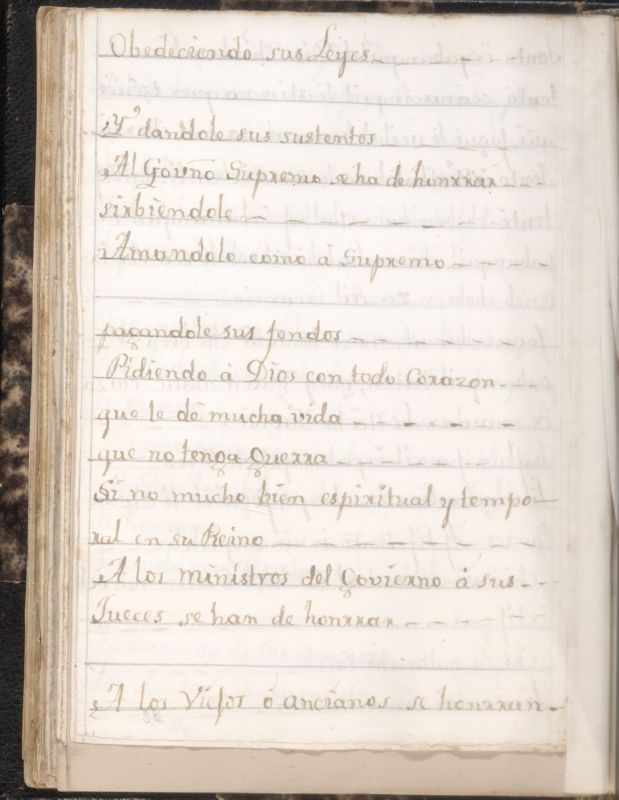 Obedeciendo sus Leyes - - - -
¿Y dandole sus sustentos
¿Al Govño Supremo se ha de honrrar - - -
sirbiendole - - - - - - -
¿Amandolo como a Supremo - - - -
pagandole sus fondos - - - - -
Pidiendo á Dios con todo Corazon - -
que le dé mucha vida - - - - -
que no tenga Guerra - - - - -
Si no mucho bien espiritual y tempo-
ral en su Reino - - - - - - -
¿A los ministros del Govierno á sus - -
Jueces se han de honrrar - - - -
¿A los Viejos ó ancianos se honrran -